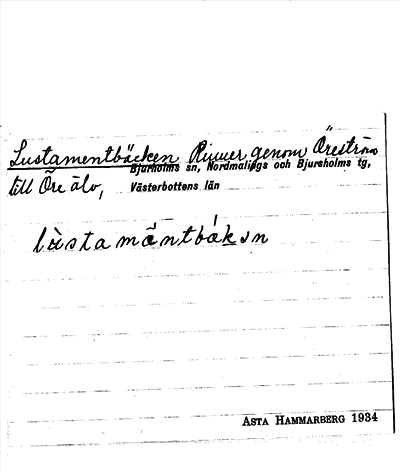 Lustamentbäcken Rinner genom Öreström
Bjurholms sn, Nordmalings och Bjurholms tg,
till Öre älv, Västerbottens län
lùstamä̀ntbákən
ASTA HAMMARBERG 1934